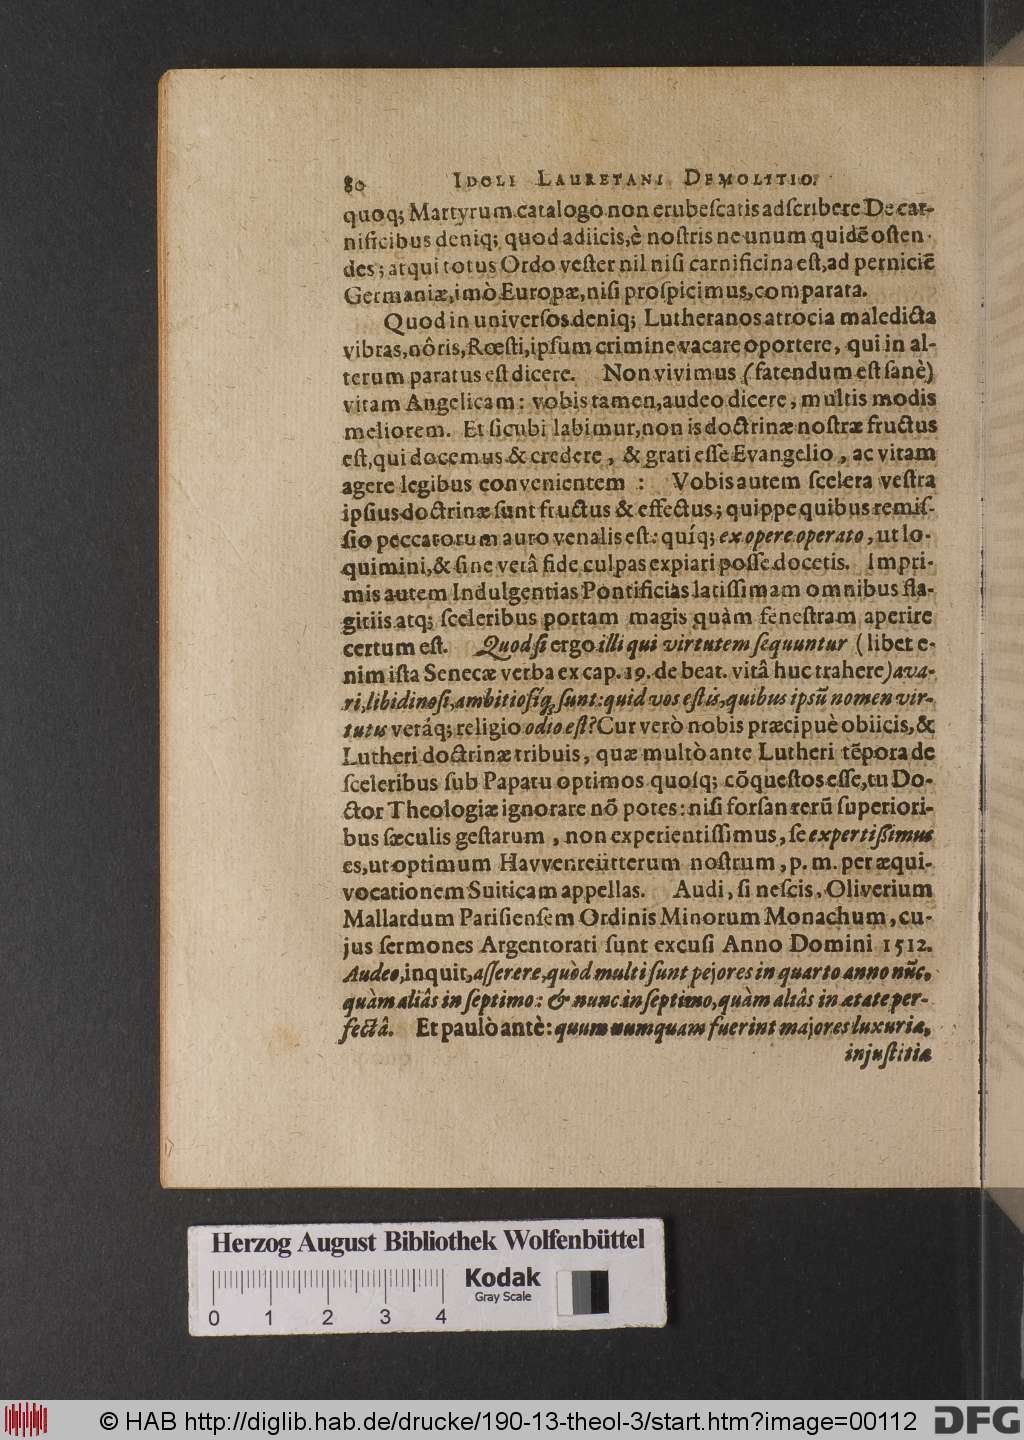 80 IDOLI LAURETANI DEMOLITIO.
quoq; Martyrum catalogo non erubeſcatis adſcribere De car-
nificibus deniq; quod adiicis, è noſtris ne unum quidē oſten-
des; atqui totus Ordo veſter nil niſi carnificina eſt, ad perniciē
Germaniæ, imò Europæ, niſi proſpicimus, comparata.
Quod in univerſos deniq; Lutheranos atrocia maledicta
vibras, nôris, Rœſti, ipſum crimine vacare oportere, qui in al-
terum paratus eſt dicere. Non vivimus (fatendum eſt ſanè)
vitam Angelicam: vobis tamen, audeo dicere, multis modis
meliorem. Et ſicubi labimur, non is doctrinæ noſtræ fructus
eſt, qui docemus & credere, & grati eſſe Evangelio, ac vitam
agere legibus convenientem : Vobis autem ſcelera veſtra
ipſius doctrinæ ſunt fructus & effectus; quippe quibus remiſ-
ſio peccatorum auro venalis eſt: quíq; ex opere operato, ut lo-
quimini, & ſine verâ fide culpas expiari poſſe docetis. Impri-
mis autem Indulgentias Pontificias latiſſimam omnibus fla-
gitiis atq; ſceleribus portam magis quàm feneſtram aperire
certum eſt. Quod ſi ergo illi qui virtutem ſequuntur (libet e-
nim iſta Senecæ verba ex cap. 19. de beat. vitâ huc trahere) ava-
ri, libidinoſi, ambitioſíq; ſunt: quid vos eſtis, quibus ipsū nomen vir-
tutis veráq; religio odio eſt? Cur verò nobis præcipuè obiicis, &
Lutheri doctrinæ tribuis, quæ multò ante Lutheri tēpora de
ſceleribus ſub Papatu optimos quoſq; cōqueſtos eſſe, tu Do-
ctor Theologiæ ignorare nō potes: niſi forſan rerū ſuperiori-
bus ſæculis geſtarum, non experientiſſimus, ſe expertiſſimus
es, ut optimum Havvenreütterum noſtrum, p. m. per æqui-
vocationem Suiticam appellas. Audi, ſi neſcis, Oliverium
Mallardum Pariſienſem Ordinis Minorum Monachum, cu-
jus ſermones Argentorati ſunt excuſi Anno Domini 1512.
Audeo, inquit, aſſerere, quòd multi ſunt pejores in quarto anno nūc,
quàm aliâs in ſeptimo: & nunc in ſeptimo, quàm aliâs in ætate per-
fectâ. Et paulò antè: quum numquam fuerint majores luxuriæ,
injuſtitiæ
Herzog August Bibliothek Wolfenbüttel
Kodak
Gray Scale
0 1 2 3 4
© HAB http://diglib.hab.de/drucke/190-13-theol-3/start.htm?image=00112
DFG